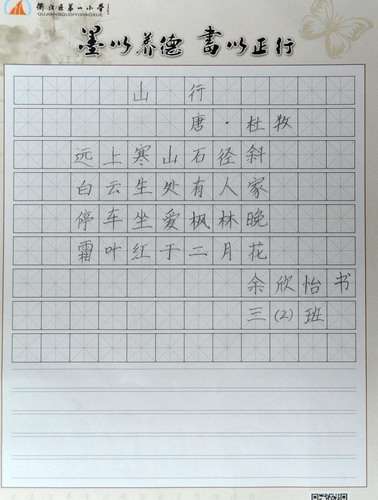 衢江区第一小学
QUJIANGQUDIYIXIAOXUE
墨以养德 书以正行
山行
唐·杜牧
远上寒山石径斜
白云生处有人家
停车坐爱枫林晚
霜叶红于二月花
余欣怡书
三(2)班